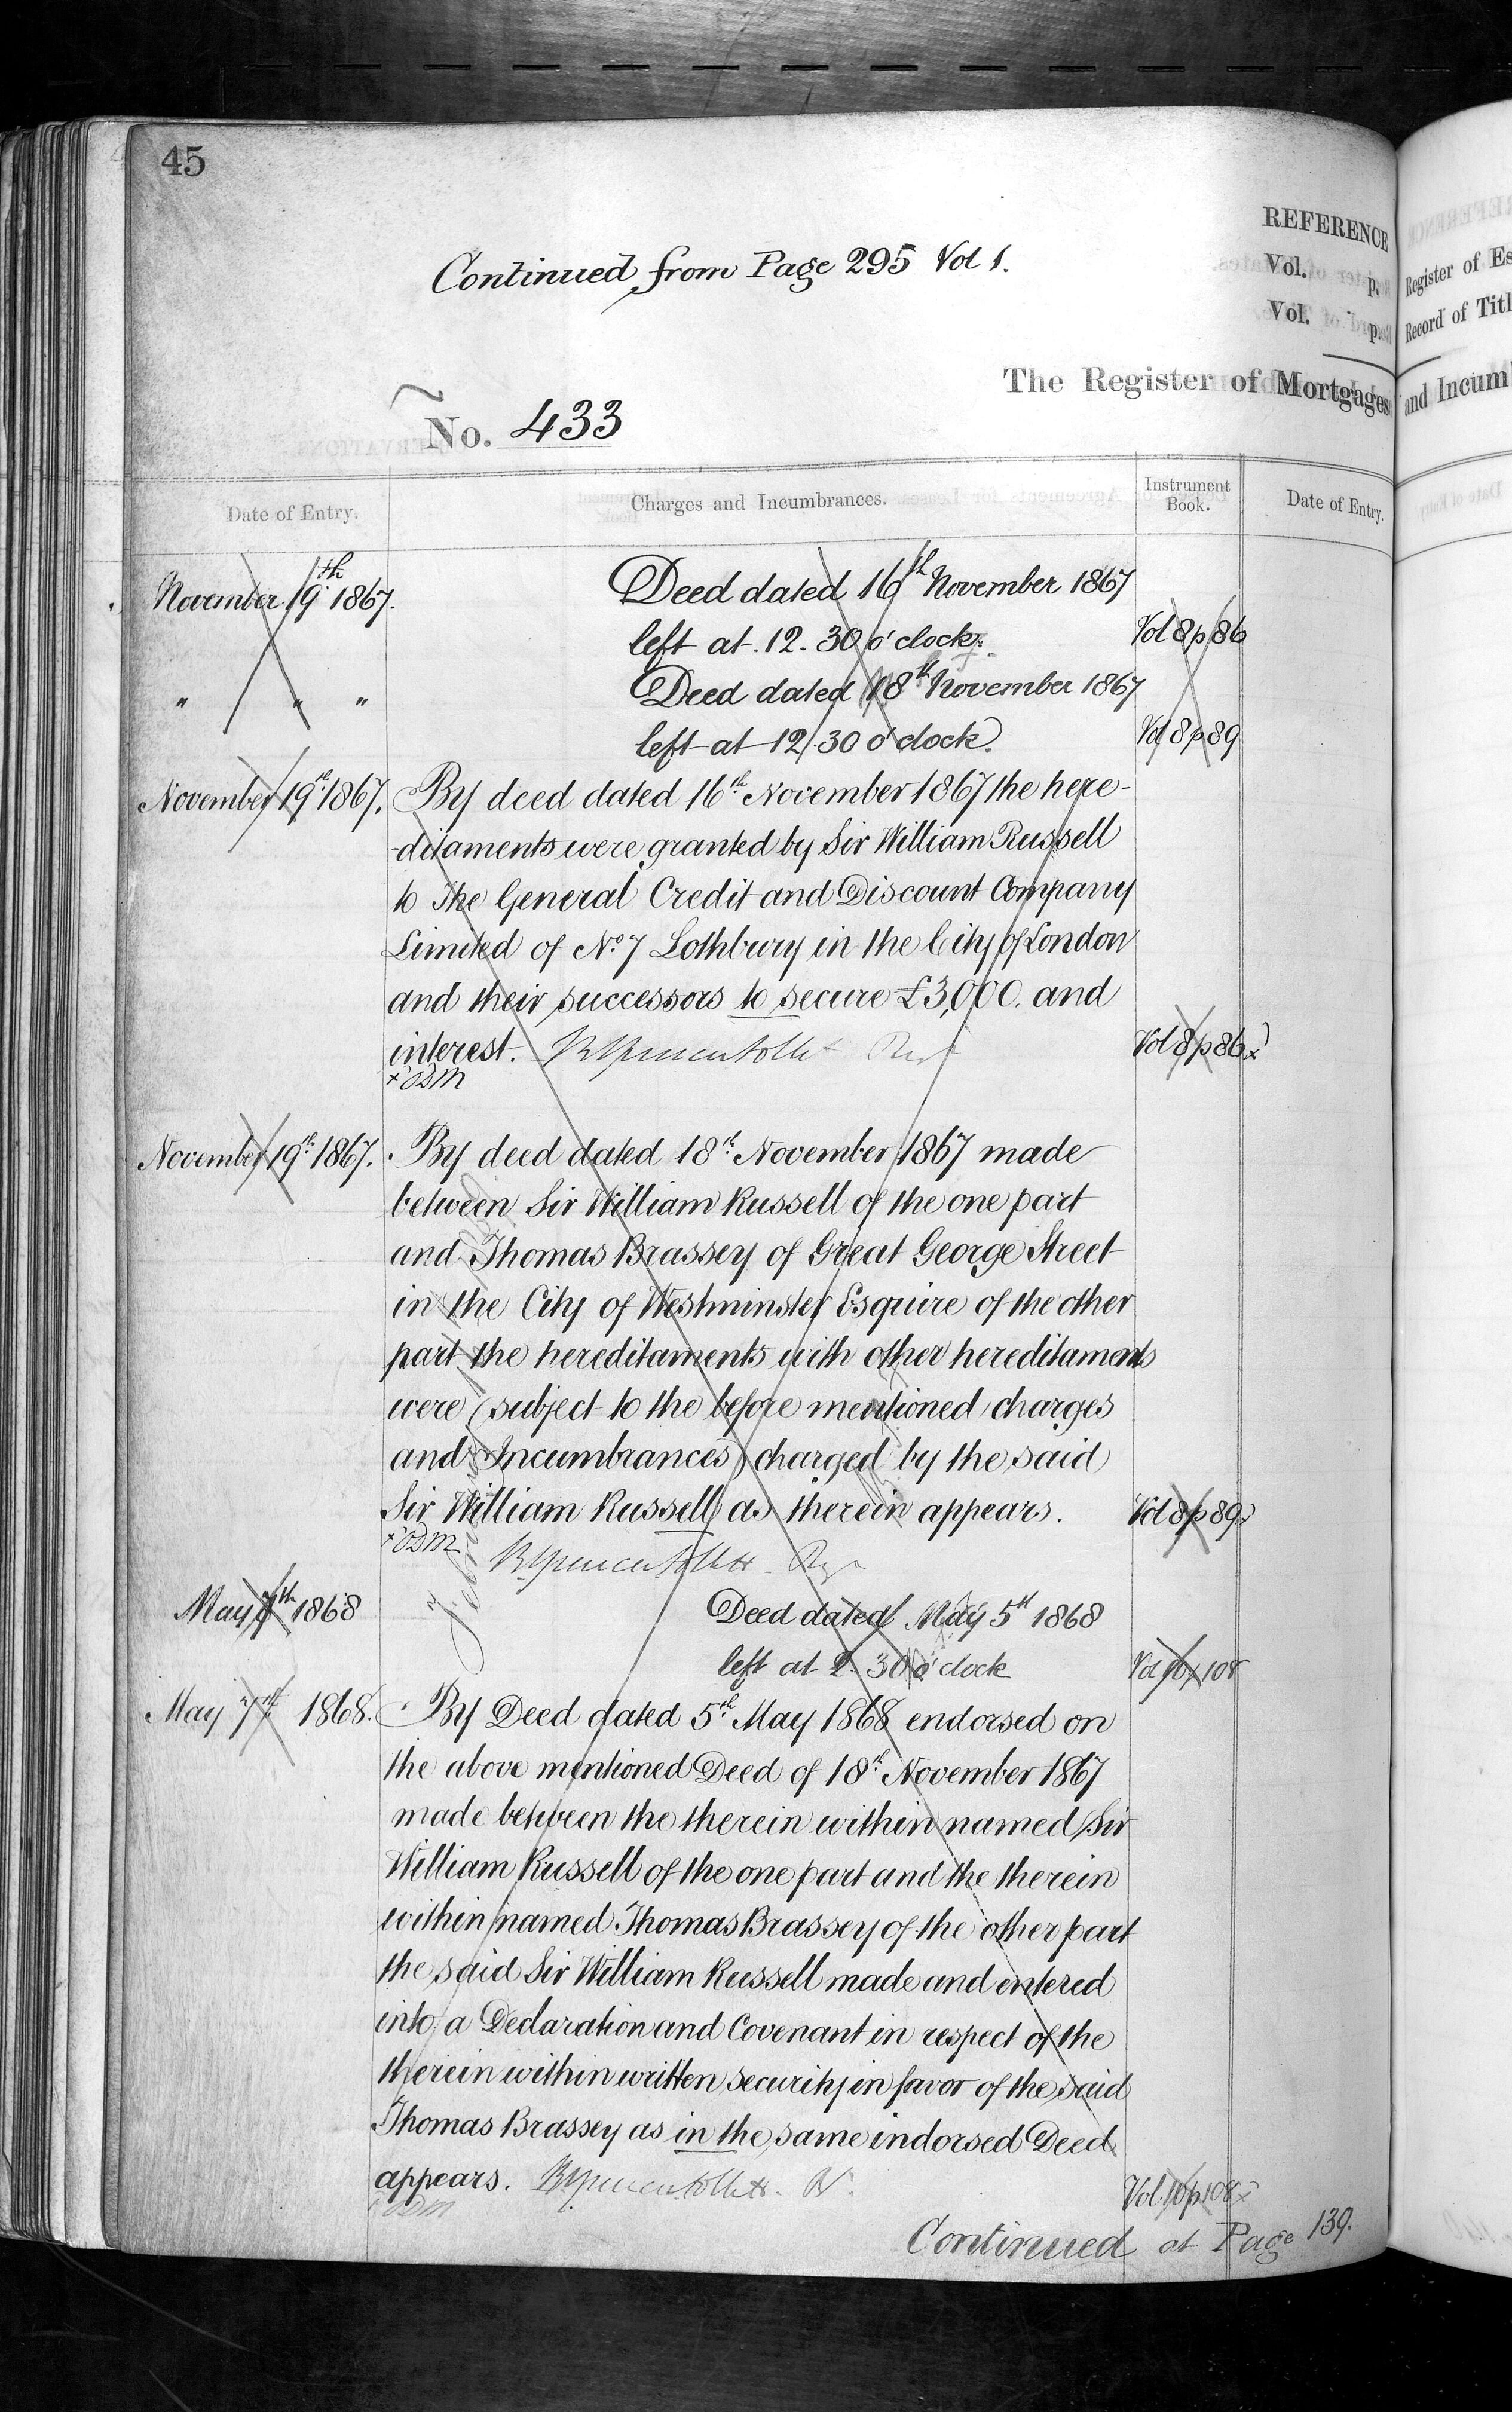 45
Continued from Page 295 Vol 1.
REFERENCE
Vol. p.
Vol. p.
Register of Es
Record of Titl
The Register of Mortgages and Incum
No. 433
Date of Entry. Charges and Incumbrances. Instrument Book. Date of Entry.
November 19th 1867. Deed dated 16th November 1867
left at 12.30 o'clock. Vol 8 p 86
" " " Deed dated 18th November 1867
left at 12.30 o'clock. Vol 8 p 89
November 19th 1867. By deed dated 16th November 1867 the here-
-ditaments were granted by Sir William Russell
to The General Credit and Discount Company
Limited of No. 7 Lothbury in the City of London
and their successors to secure £3,000. and
interest. Vol 8 p 86 x
x ODM
November 19th 1867. By deed dated 18th November 1867 made
between Sir William Russell of the one part
and Thomas Brassey of Great George Street
in the City of Westminster Esquire of the other
part the hereditaments with other hereditaments
were (subject to the before mentioned charges
and Incumbrances) charged by the said
Sir William Russell as therein appears. Vol 8 p 89 x
x ODM
May 7th 1868 Deed dated May 5th 1868
left at 2.30 o'clock Vol 10 p 108
May 7th 1868. By Deed dated 5th May 1868 endorsed on
the above mentioned Deed of 18th November 1867
made between the therein within named Sir
William Russell of the one part and the therein
within named Thomas Brassey of the other part
the said Sir William Russell made and entered
into a Declaration and Covenant in respect of the
therein within written security in favor of the said
Thomas Brassey as in the same indorsed Deed
appears. Vol. 10 p 108 x
x ODM
Continued at Page 139.